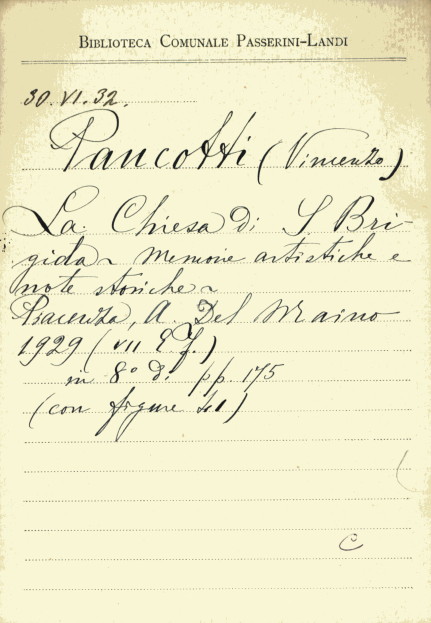 BIBLIOTECA COMUNALE PASSERINI-LANDI
30.VI.32.
Pancotti (Vincenzo)
La Chiesa di S. Bri-
gida ~ Memorie artistiche e
note storiche ~
Piacenza, A. Del Maino
1929 (VII E. F.)
in 8° di pp. 175
(con figure 41)
C